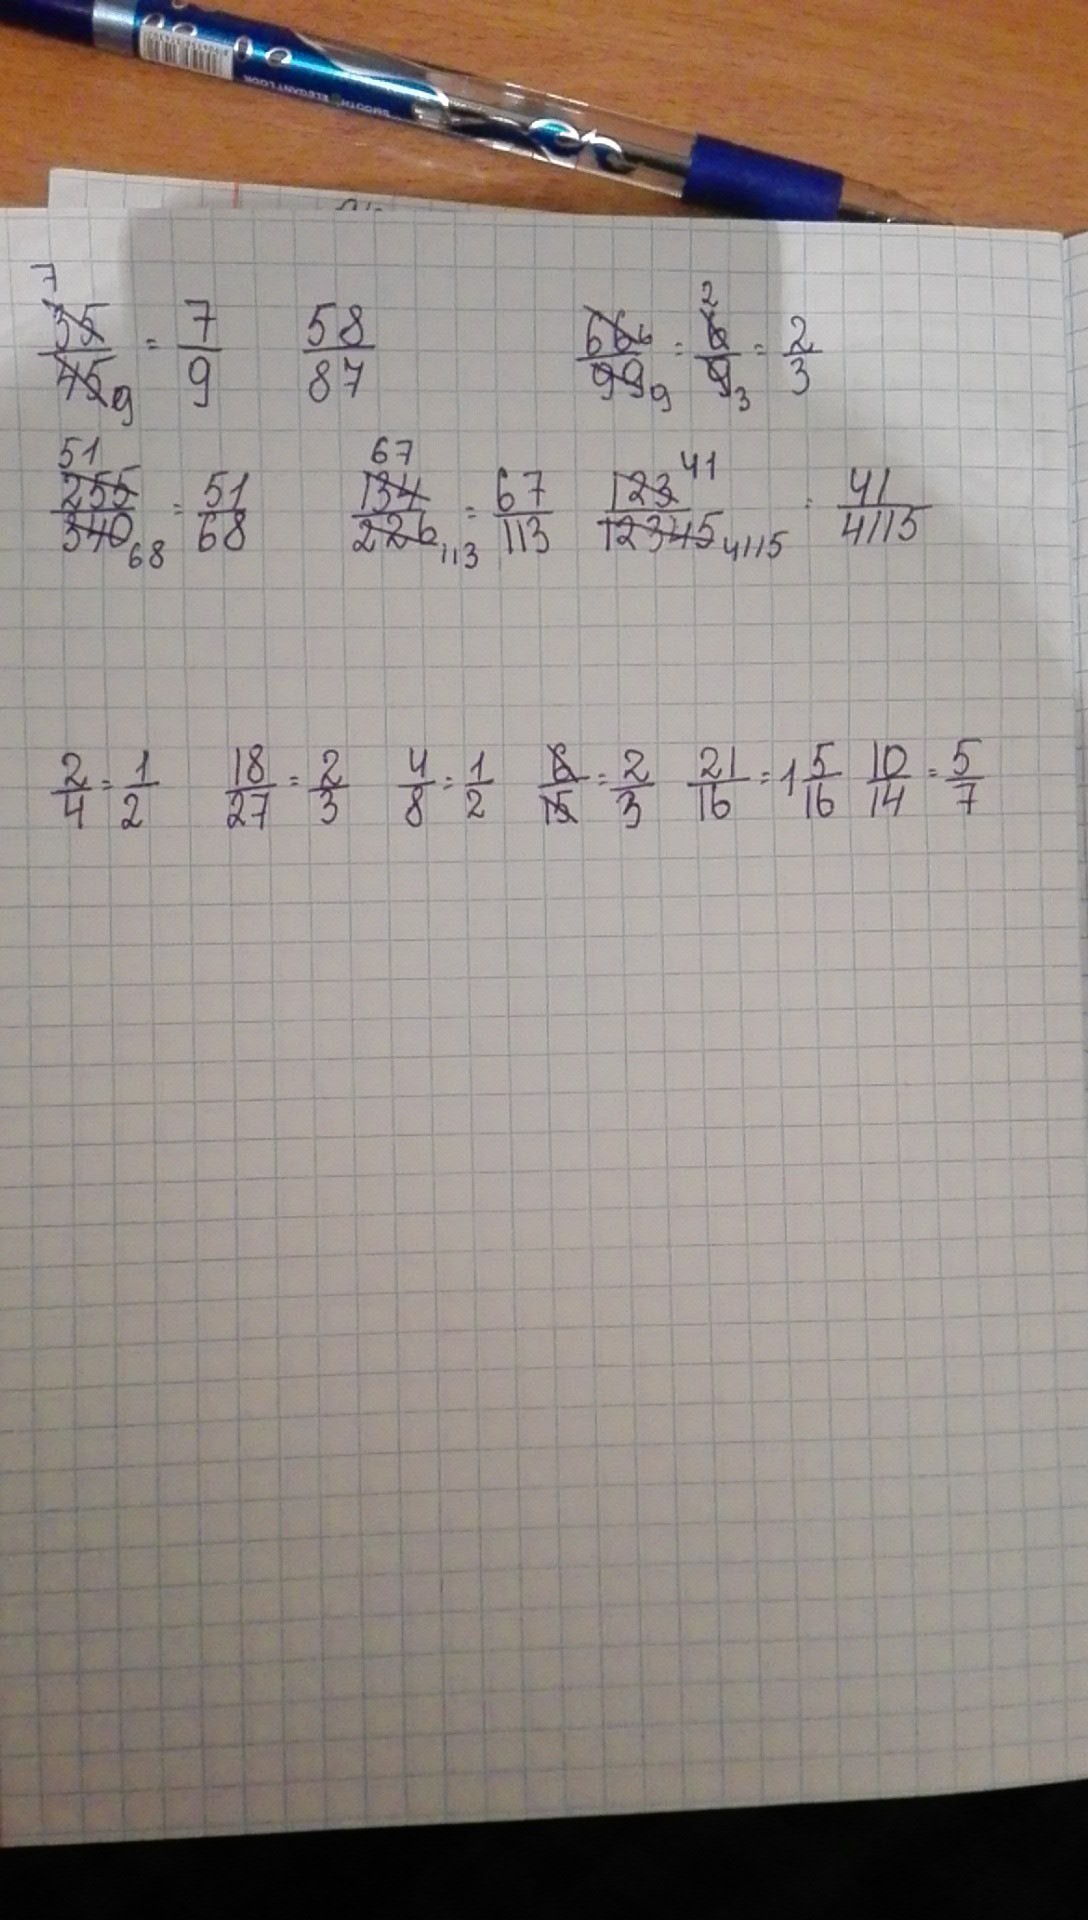 SMOOTH & ELEGANT LOOK
7 35/45 9 = 7/9 58/87 66/99 6 9 = 2 6/9 3 = 2/3
51 255/340 68 = 51/68 67 134/226 113 = 67/113 123/12345 41 4115 = 41/4115
2/4 = 1/2 18/27 = 2/3 4/8 = 1/2 8/15 = 2/3 21/16 = 1 5/16 10/14 = 5/7